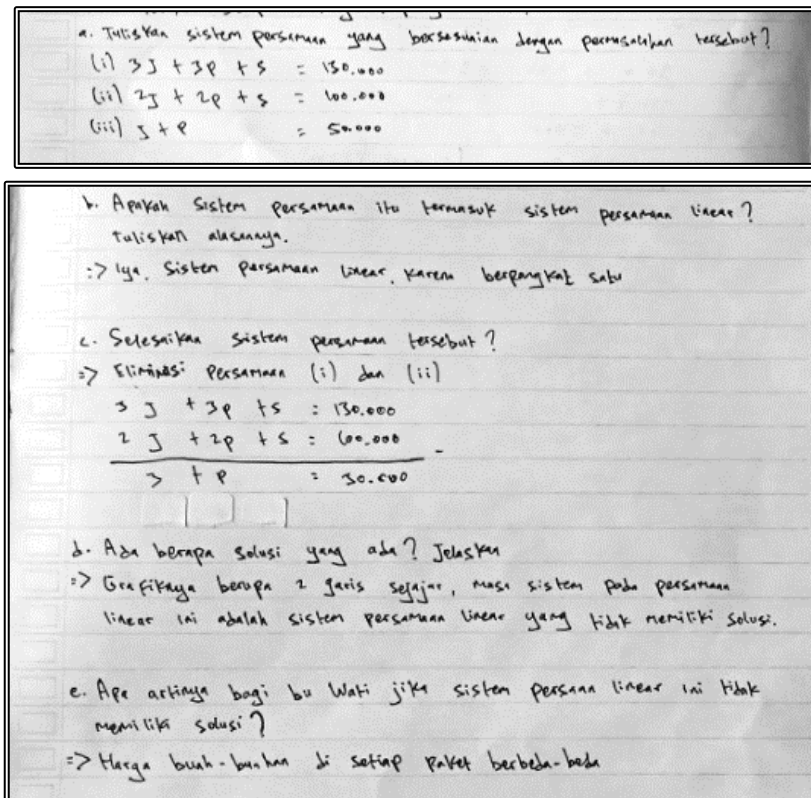 a. Tuliskan sistem persamaan yang bersesuaian dengan permasalahan tersebut?
(i) 3J + 3P + S = 130.000
(ii) 2J + 2P + S = 100.000
(iii) J + P = 50.000
b. Apakah Sistem persamaan itu termasuk sistem persamaan linear?
Tuliskan alasannya.
=> Iya, Sistem persamaan linear, karena berpangkat satu
c. Selesaikan sistem persamaan tersebut?
=> Eliminasi persamaan (i) dan (ii)
3 J + 3P + S = 130.000
2 J + 2P + S = 100.000 -
J + P = 30.000
d. Ada berapa solusi yang ada? Jelaskan
=> Grafiknya berupa 2 garis sejajar, sistem pada persamaan
linear ini adalah sistem persamaan linear yang tidak memiliki solusi.
e. Apa artinya bagi bu Wati jika sistem linear ini tidak
memiliki solusi?
=> Harga buah-buahan di setiap paket berbeda-beda